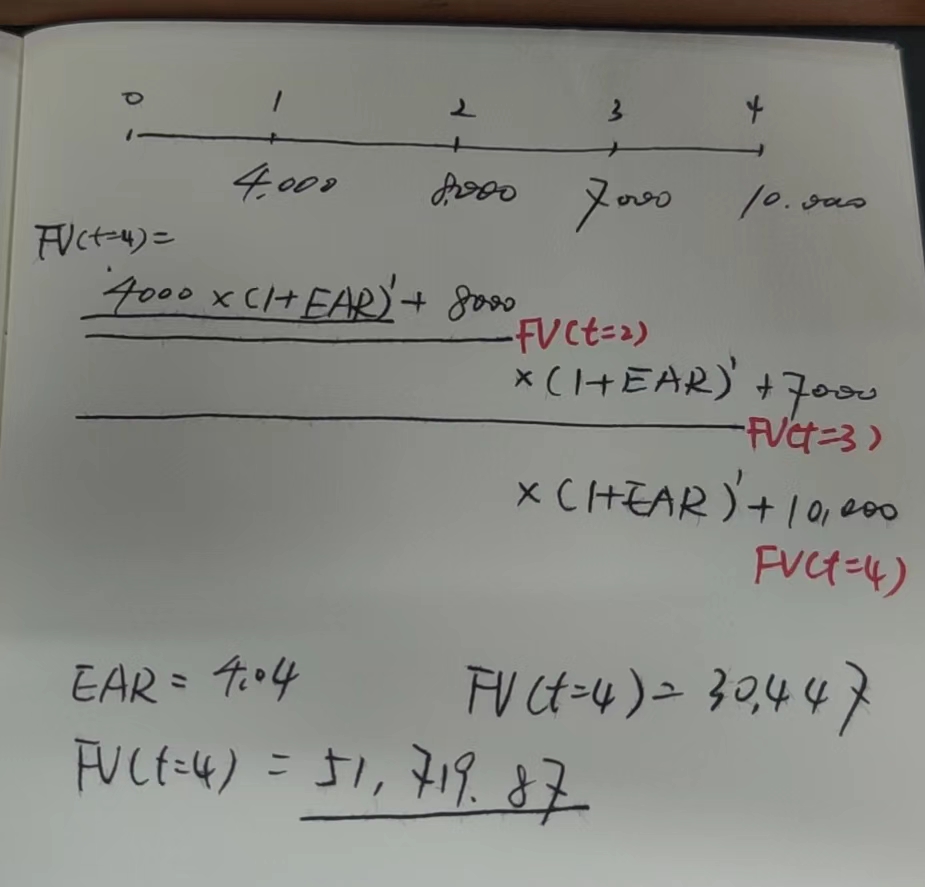 0 1 2 3 4
4.000 8.000 7000 10.000
FV(t=4)=
4000 x (1+EAR)¹ + 8000
FV(t=2)
x (1+EAR)¹ + 7000
FV(t=3)
x (1+EAR)¹ + 10,000
FV(t=4)
EAR = 4.04 FV(t=4) = 30,447
FV(t=4) = 51,719.87